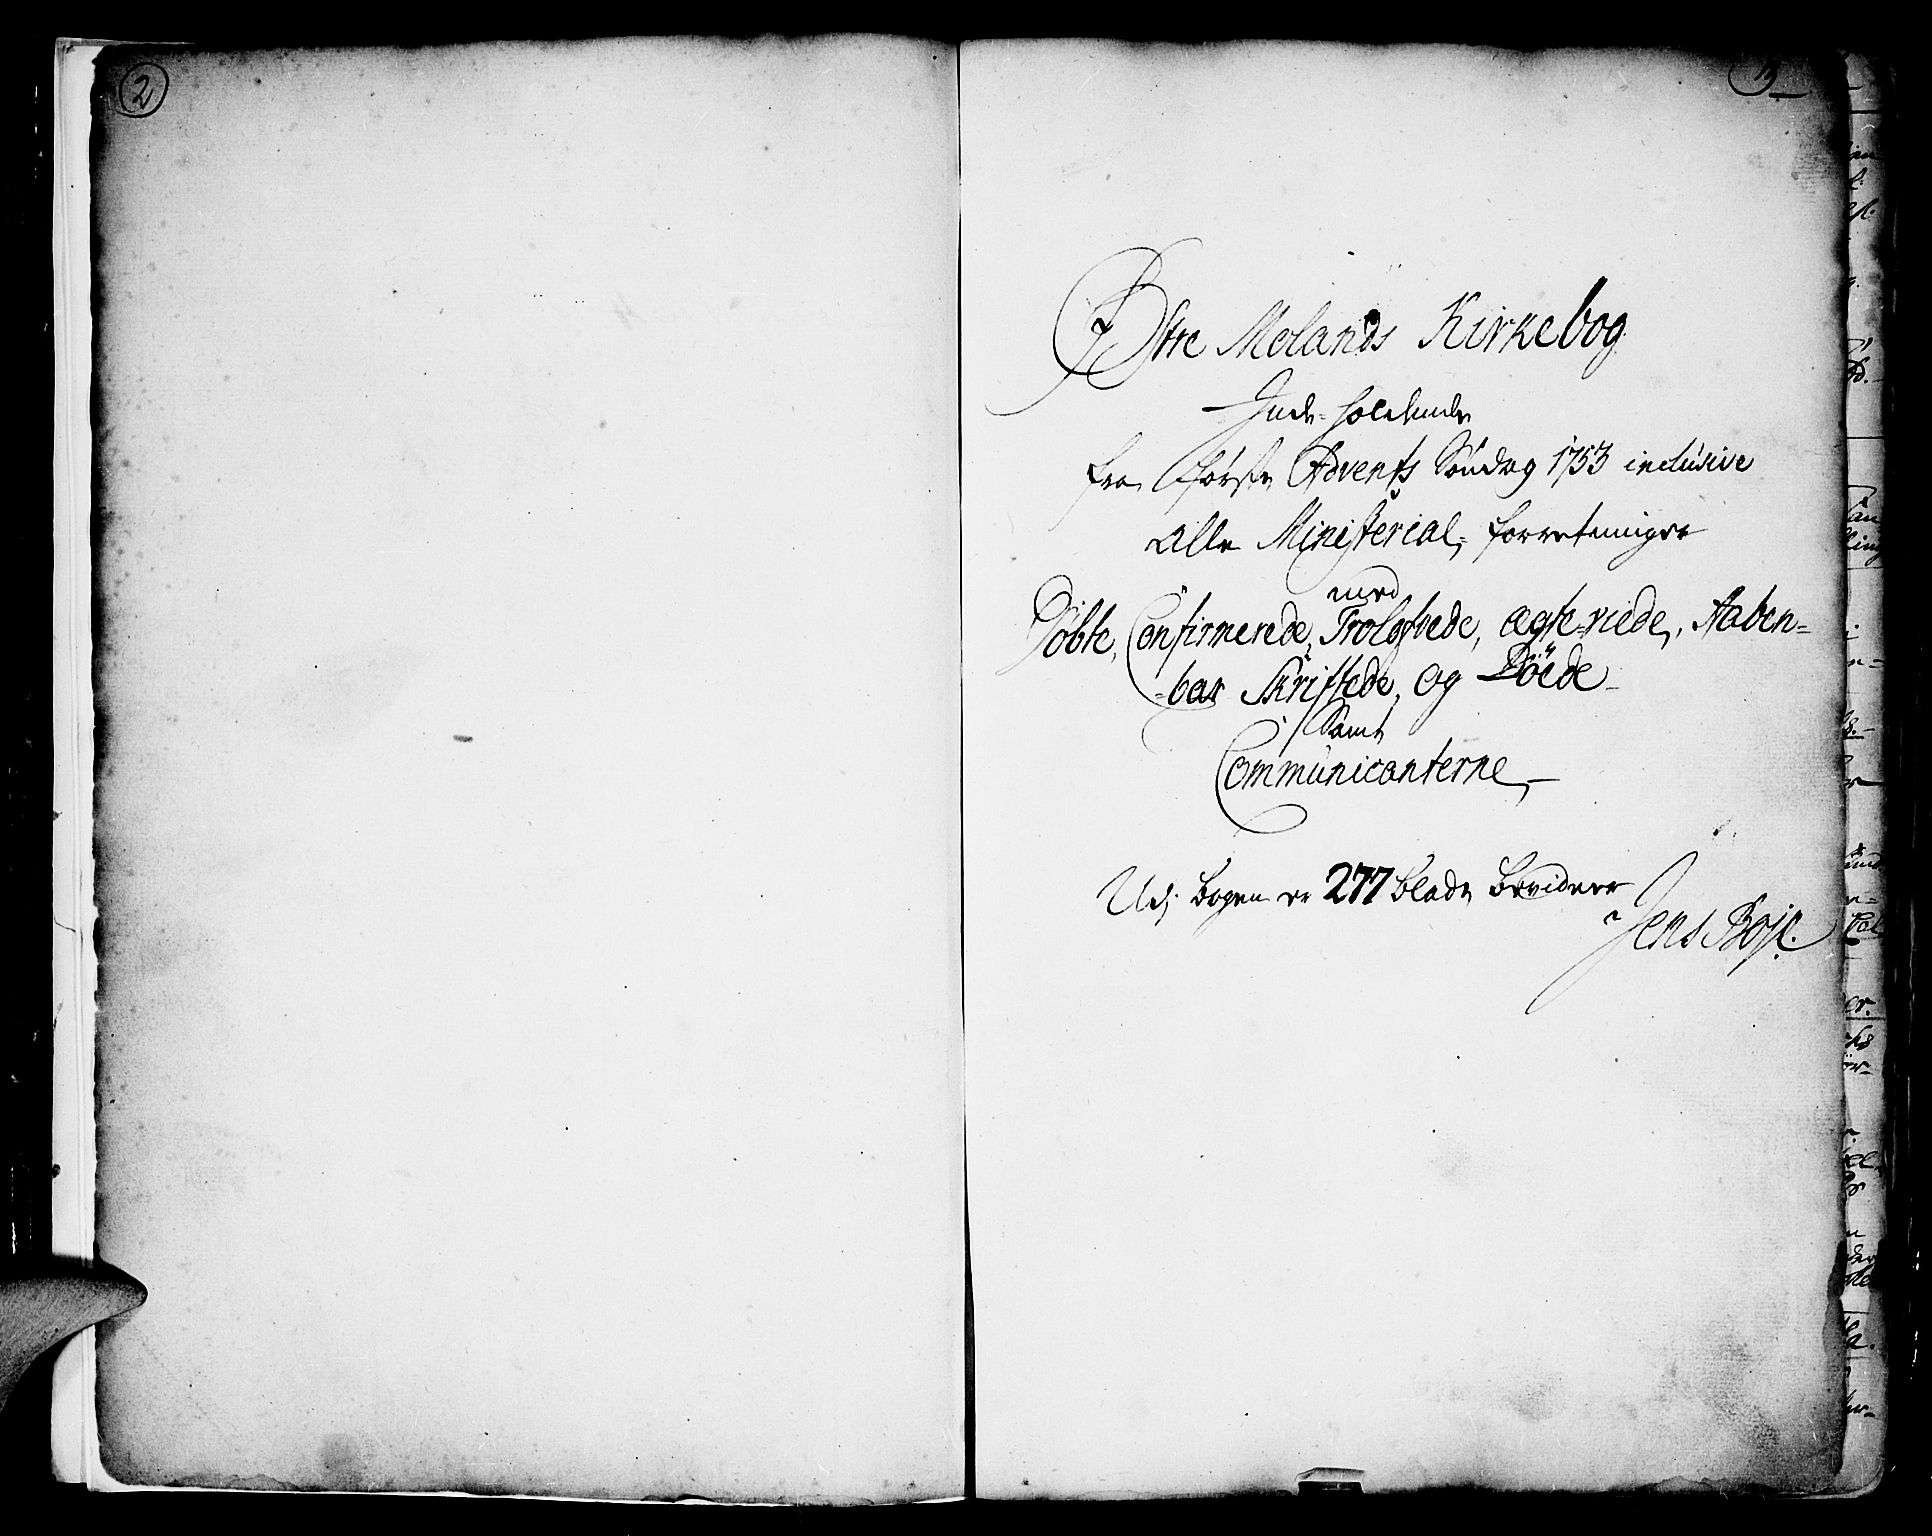 2
3
Østre Molands Kirkebog
Inde-holdende
fra Første Advents Søndag 1753 inclusive
alle Ministerial-forretninger
med
Døbte, Confirmerede, Trolofvede, ægte-viede, Aaben=
=bar Skriftede, og Døede
Samt
Communicanterne,
Udj bogen er 277 blade bevidner
Jens Boje.